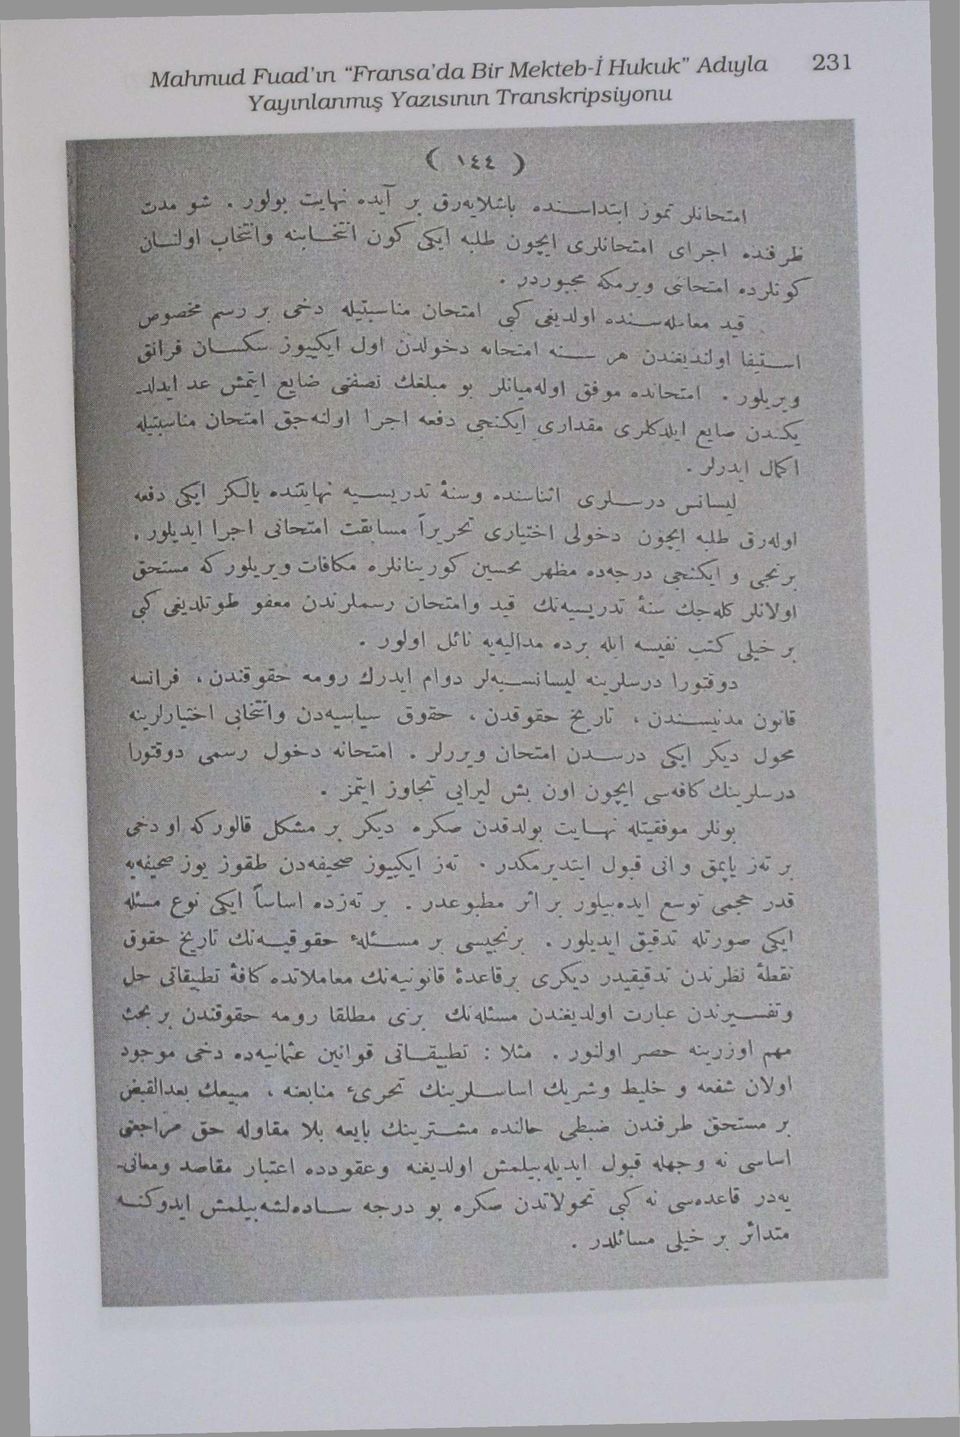 Mahmud Fuad'ın "Fransa'da Bir Mekteb-İ Hukuk" Adıyla 231
Yayınlanmış Yazısının Transkripsiyonu
( ١٤٤ )
امتحانلر تموز ابتداسنده باشلایه‌رق بر آیده نهایت بولور . شو مدت
ظرفنده اجرای امتحانلری ایچون طلبه ایکی کون انتخابنه وانتخاب اولنان
کونلرده امتحانی ویرمکه مجبوردر .
قید معامله‌سنده اولدیغی کبی امتحان مناسبتیله دخی بر رسم مخصوص
استیفا اولندیغندن هر سنه امتحانه دخولدن اول ایکیوز سکسان فرانق
ویریلور . امتحانده موفق اوله‌میانلر بو مبلغك نصفنی ضایع ایتمش عد ایدلد-
یکندن ضایع ایلدکلری مقداری ایکنجی دفعه اجرا اولنه‌جق امتحان مناسبتیله
اکمال ایدرلر .
لیسانس درسلری اثناسنده وسنهٔ تدریسیه نهایتنده یالکز ایکی دفعه
اوله‌رق طلبه ایچون دخولی اختیاری تحریراً مسابقت امتحانی اجرا ایدیلور .
برنجی و ایکنجی درجه‌ده مظهر تحسین کورینانلره مکافات ویریلورکه مستحق
اولانلر کله‌جك سنهٔ تدریسیه‌نك قید وامتحان رسملرندن معفو طوتلدیغی کبی
بر خیلی کتب نفیسه ایله برده مدالیه‌یه نائل اولور .
دوقتورا درسلرینه لیسانسیه‌لر دوام ایدرك رومه حقوقندن ، فرانسه
قانون مدنیسندن ، تاریخ حقوقدن ، حقوق سیاسیه‌دن وانتخابی اختیارلرینه
محول دیکر ایکی درسدن امتحان ویررلر . امتحانه دخول رسمی دوقتورا
درسلرینك کافه‌سی ایچون اون بش لیرایی تجاوز ایتمز .
بونلر موفقیتله نهایت بولدقدن صکره دیکر بر مشکل قالورکه او دخی
بر ته‌ز یاپمق و آنی قبول ایتدیرمکدر . ته‌ز ایکیوز صحیفه‌دن طقوز یوز صحیفه‌یه
قدر حجمی توسع ایده‌بیلور بر اثر مطبوعدر . بر ته‌زده اساساً ایکی نوع مسئله
ایکی صورتله تدقیق ایدیلور . برنجیسی بر مسئلهٔ حقوقیه‌نك تاریخ حقوق
نقطهٔ نظرندن تدقیقیدر دیکری برقاعدهٔ قانونیه‌نك معاملاتده کافهٔ تطبیقاتی حل
وتفسیرندن عبارت اولدیغندن مسئله‌نك بری مطلقا رومه حقوقندن بر بحث
مهم اوزرینه حصر اولنور . مثلا : تطبیقاتی قوانین عثمانیه‌ده دخی موجود
اولان شفعه و خلیط وشریك اساسلرینك تحریٔ منابعنه ، مبیعك بعدالقبض
بر مستحق طرفندن ضبطی حالنده مشترینك بایعه بلا مقاوله حق مراجعتی
اساسی نه وجهله قبول ایدیله‌بیلمش اولدیغنه وعقودده اعتبار مقاصد ومعانی-
یه‌در قاعده‌سی نه کبی تحولاتدن صکره بو درجه ساده‌لشه‌بیلمش ایدوکنه
متدائر بر خیلی مسائلدر .